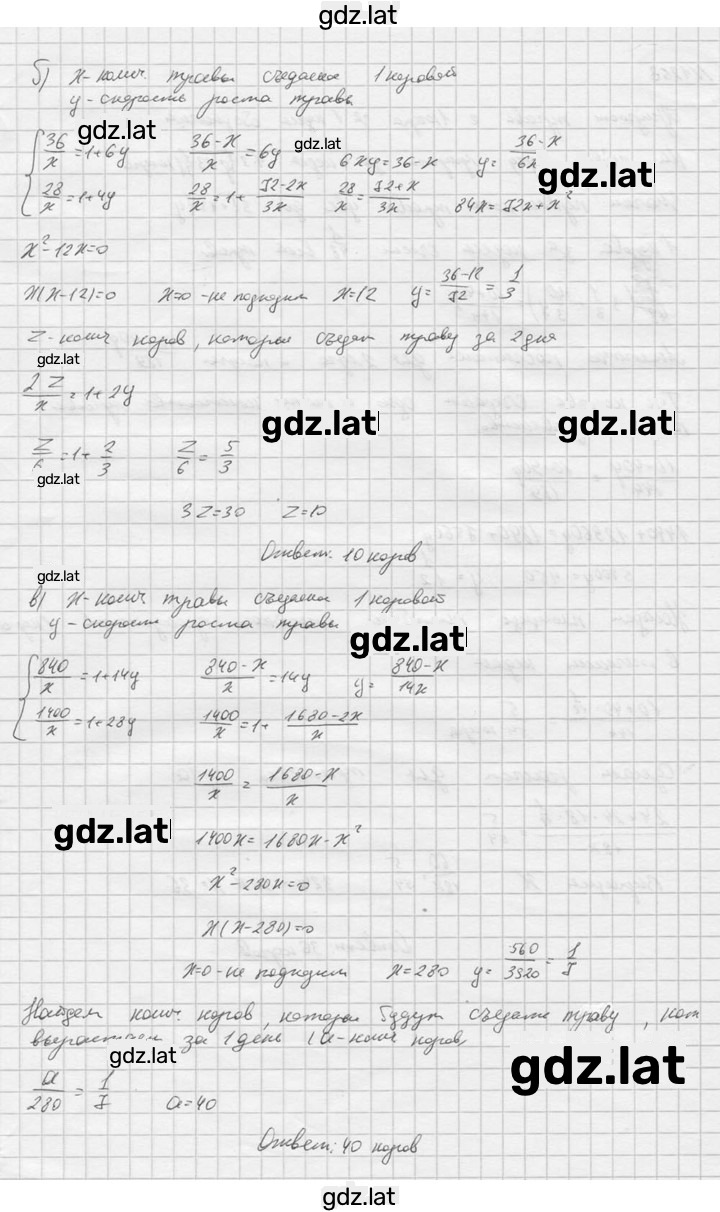 gdz.lat
б) x-колич. травы съедаемое 1 коровой
y-скорость роста травы
gdz.lat
36/x = 1+6y (36-x)/x = 6y gdz.lat 6xy = 36-x y = (36-x)/6x gdz.lat
28/x = 1+4y 28/x = 1+ (72-2x)/3x 28/x = (72+x)/3x 84x = 72x+x²
x²-12x=0
x(x-12)=0 x=0 -не подходит x=12 y = (36-12)/72 = 1/3
z-колич коров, которые съедят траву за 2 дня
gdz.lat
2z/x = 1+2y
gdz.lat gdz.lat
z/6 = 1+ 2/3 z/6 = 5/3
gdz.lat
3z=30 z=10
Ответ: 10 коров
gdz.lat
в) x-колич травы съедаемое 1 коровой
y-скорость роста травы
gdz.lat
840/x = 1+14y (840-x)/x = 14y y = (840-x)/14x
1400/x = 1+28y 1400/x = 1+ (1680-2x)/x
1400/x = (1680-x)/x
gdz.lat
1400x = 1680x-x²
x²-280x=0
x(x-280)=0
x=0 -не подходит x=280 y = 560/3920 = 1/7
Найдем колич. коров, которые будут съедать траву, кот
вырастет за 1 день (a-колич коров)
gdz.lat
gdz.lat
a/280 = 1/7 a=40
Ответ: 40 коров
gdz.lat